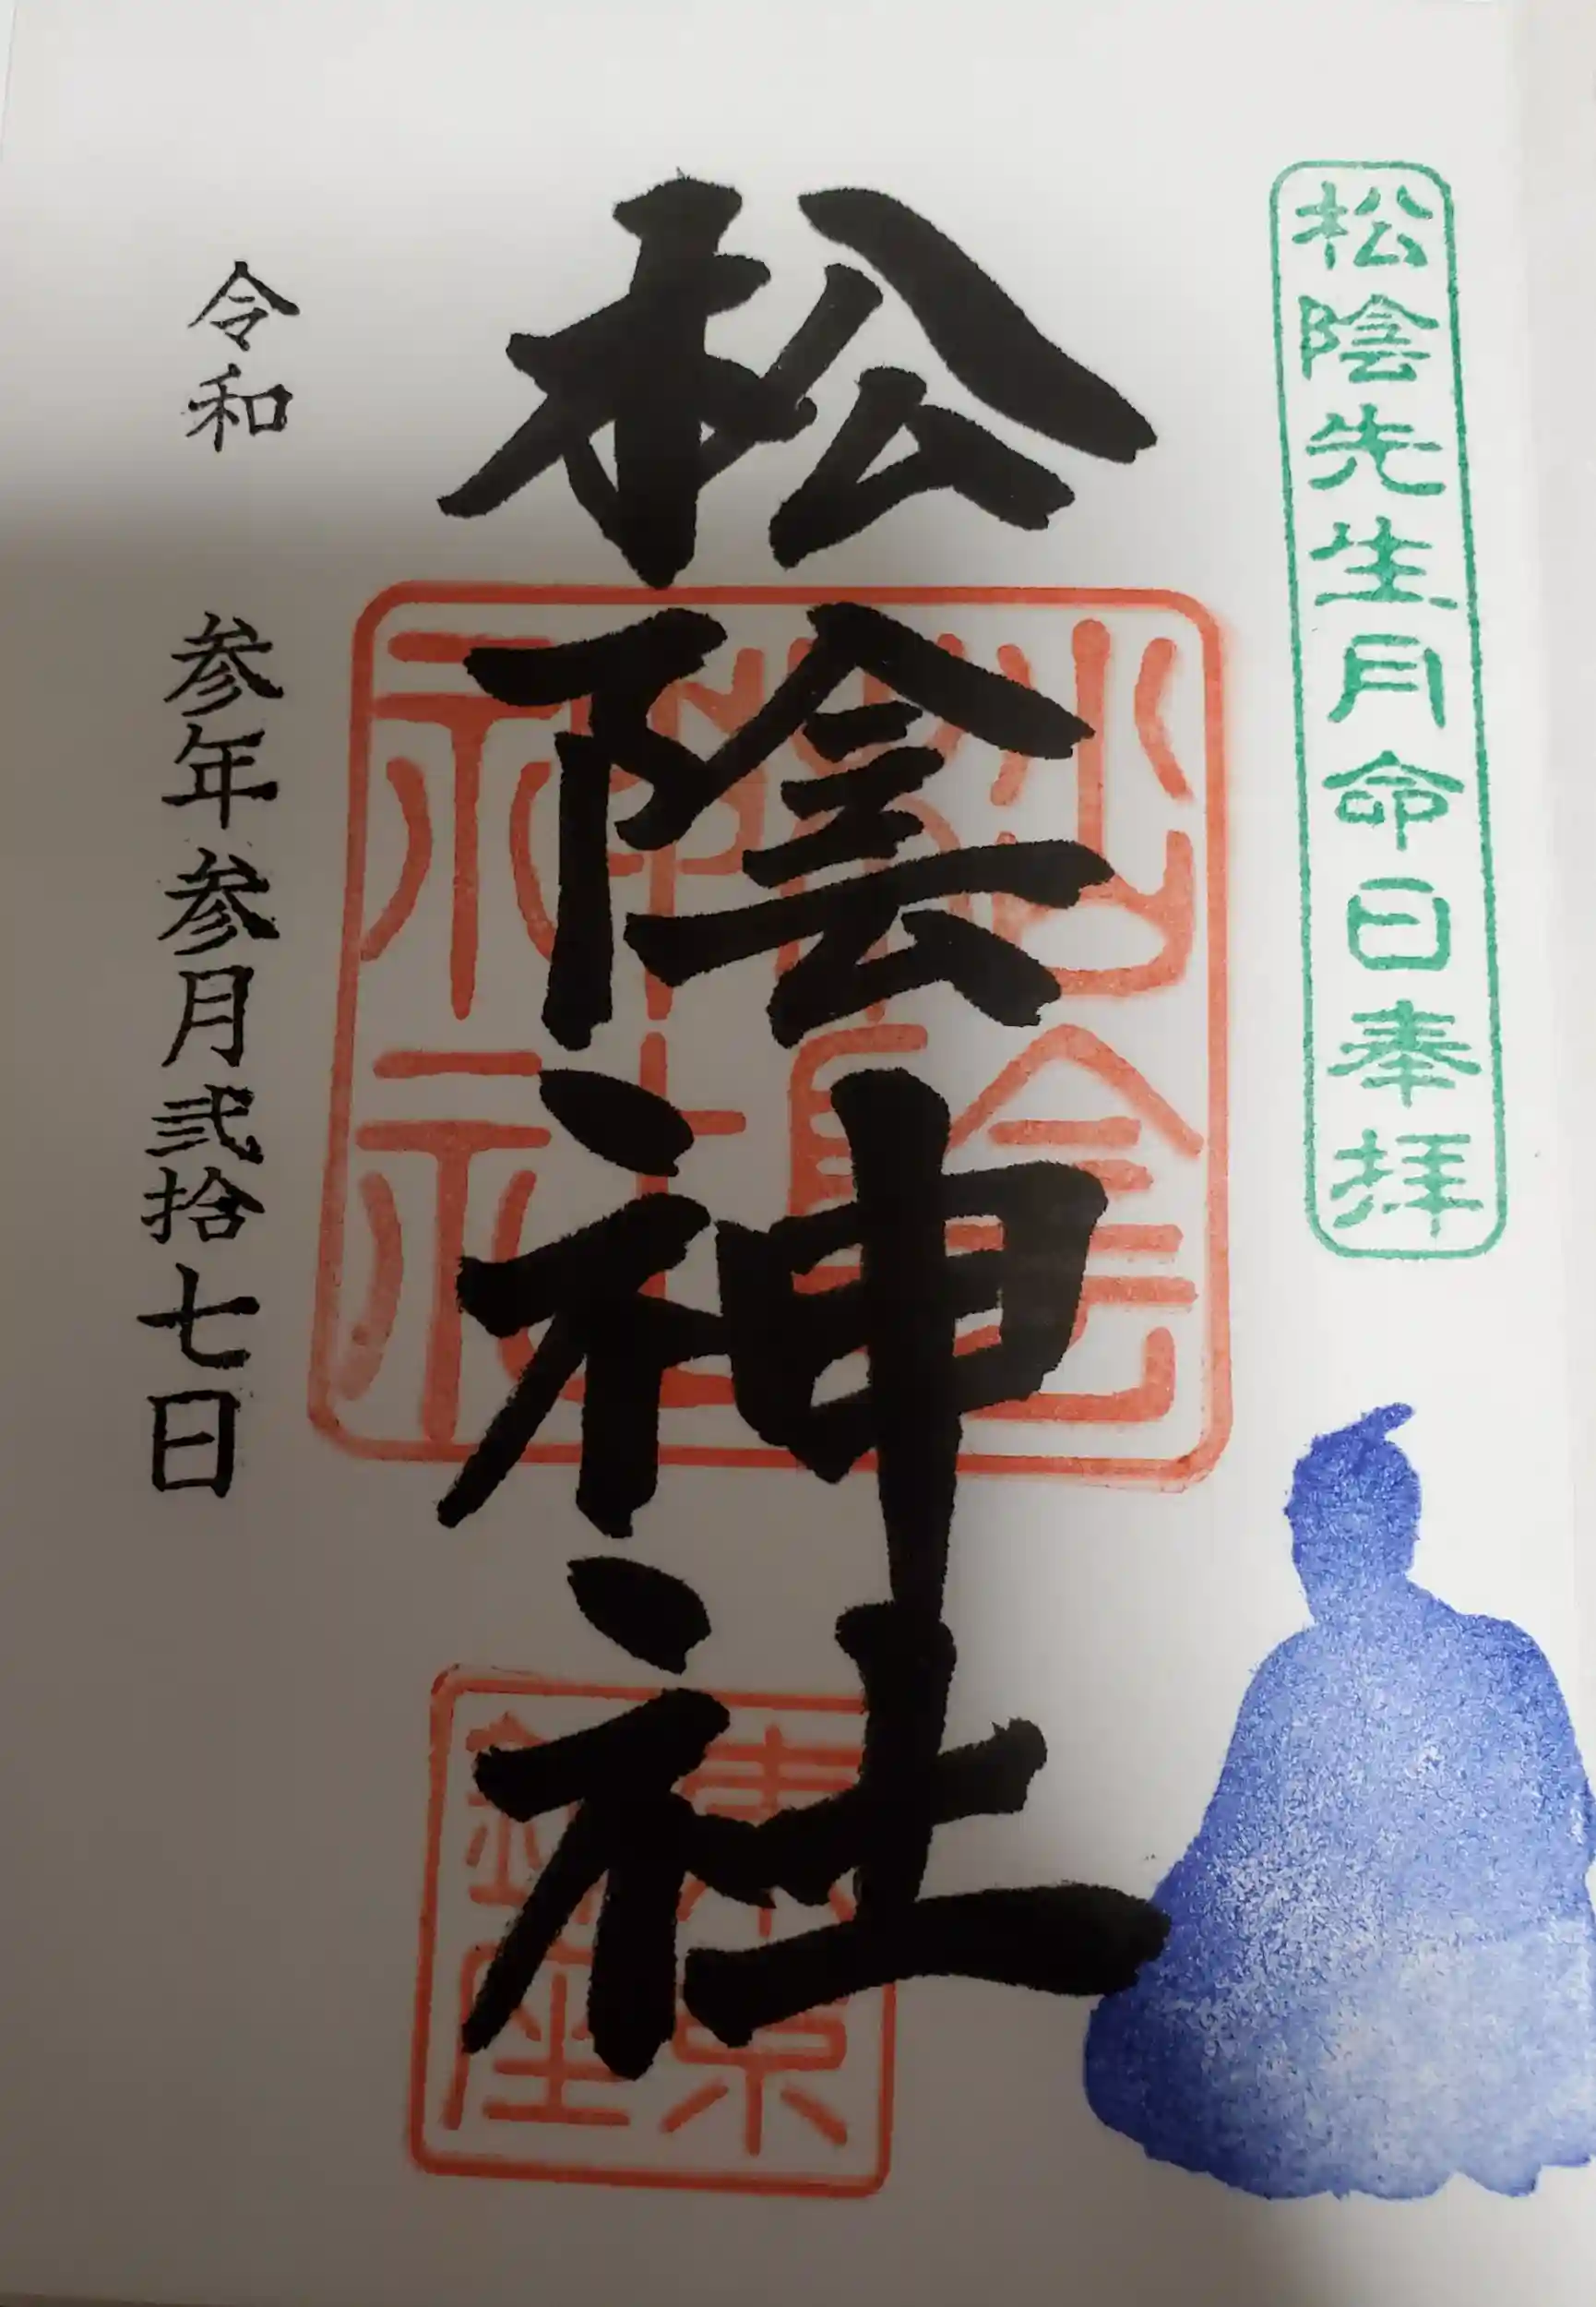 松陰先生月命日奉拝
松陰神社
松陰神社
東京
鎮座
令和 参年参月弐拾七日